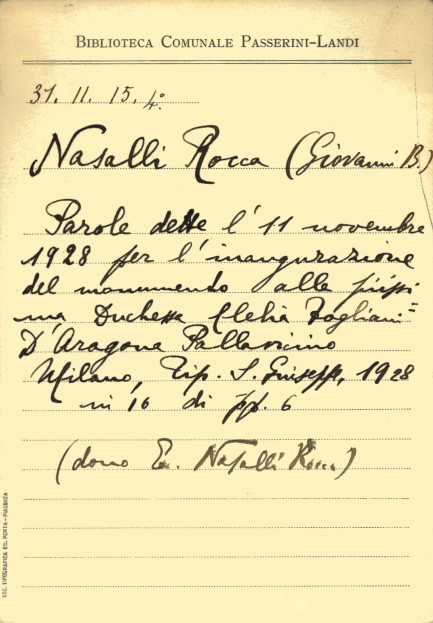 BIBLIOTECA COMUNALE PASSERINI-LANDI
31. 11. 15. 4º.
Nasalli Rocca (Giovanni B.)
Parole dette l' 11 novembre
1928 per l'inaugurazione
del monumento alle
ma Duchessa Clelia Fogliani=
D'Aragona Pallavicino
Milano, Tip. S. Giuseppe, 1928
in 16 di pp. 6
(dono E. Nasalli Rocca)
SOC. TIPOGRAFICA ED. PORTA - PIACENZA